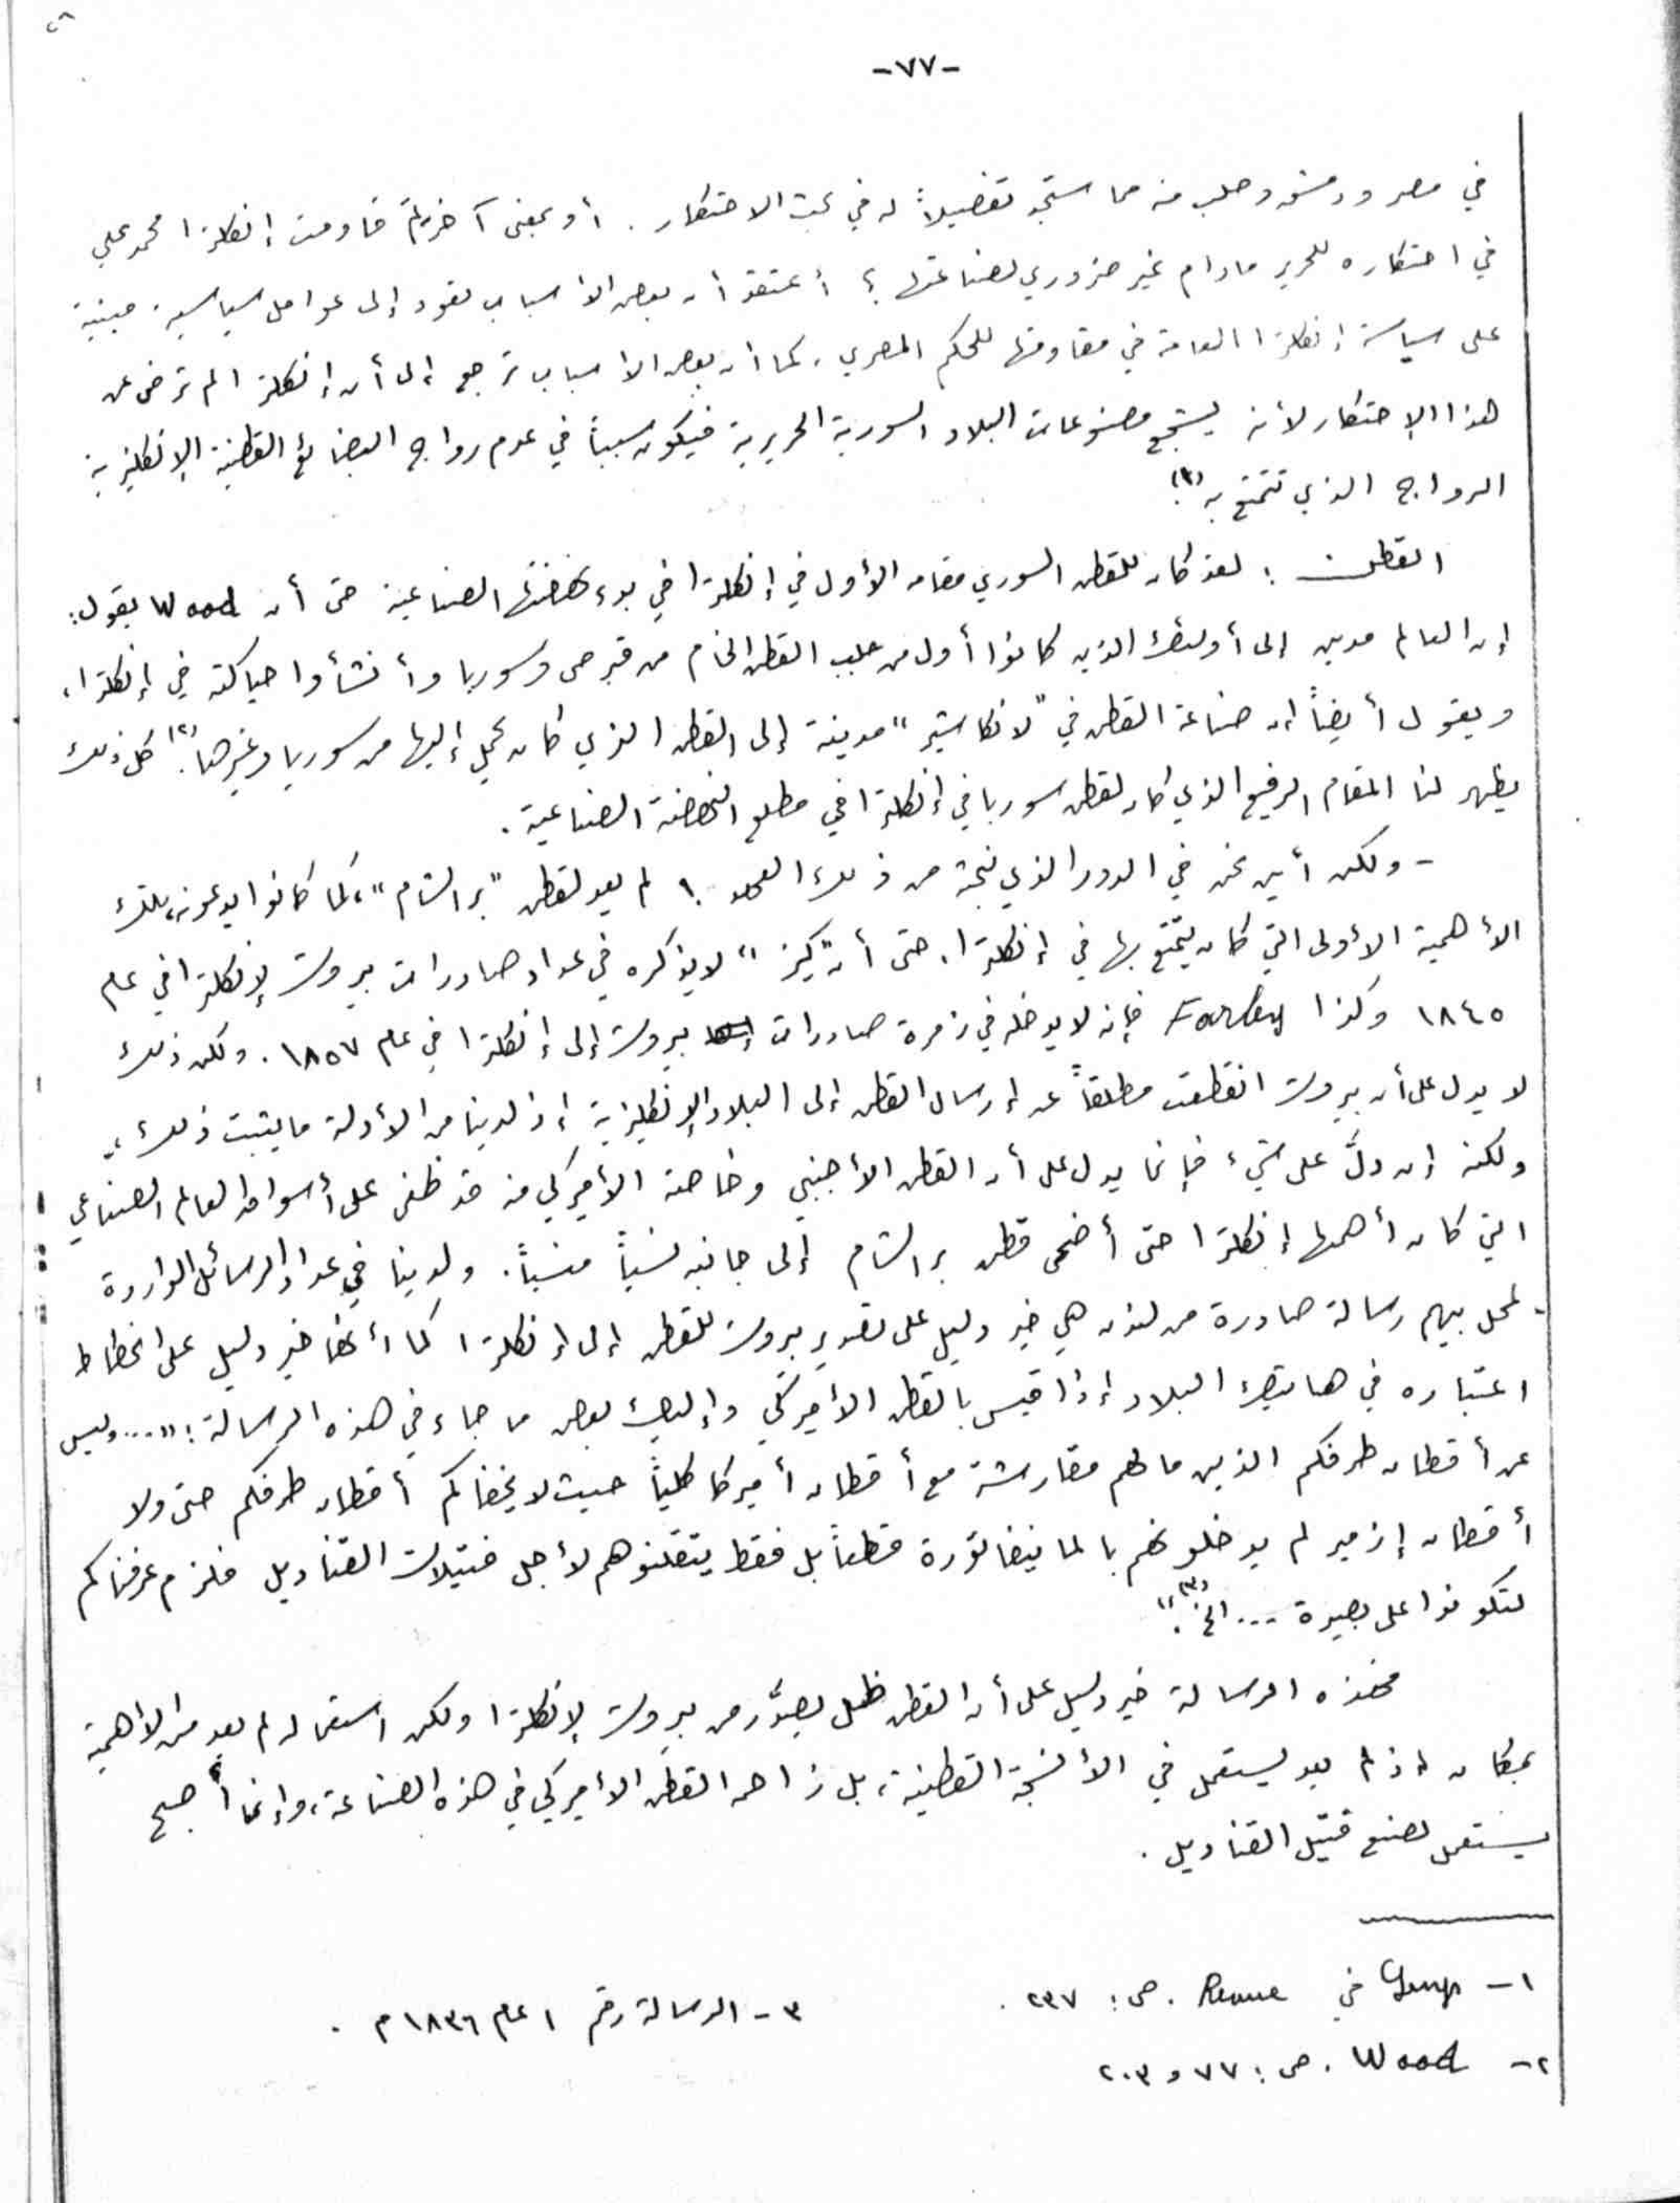 -٧٧-
في مصر ودمشق وحلب منه مما ستجد تفصيلاً له في بحث الاحتكار. أو بمعنى آخر لِمَ قاومت إنكلترا محمد علي
في احتكاره للحرير مادام غير ضروري لصناعتها؟ أعتقد أن بعض الأسباب تعود إلى عوامل سياسية. مبنية
على سياسة إنكلترا العامة في مقاومتها للحكم المصري. كما أن بعض الأسباب ترجع إلى أن إنكلترا لم ترض عن
هذا الإحتكار لأنه يشجع مصنوعات البلاد السورية الحريرية فيكون سبباً في عدم رواج البضائع القطنية الإنكليزية
الرواج الذي تتمتع به (١).
القطن : لقد كان للقطن السوري مقامه الأول في إنكلترا في بدء نهضتها الصناعية حتى أن Wood يقول:
إن العالم مدين إلى أولئك الذين كانوا أول من جلب القطن الخام من قبرص وسوريا وأنشأوا حياكته في إنكلترا،
ويقول أيضاً إن صناعة القطن في "لانكاستير" مدينة إلى القطن الذي كان يحمل إليها من سوريا وغيرها.(٢) كل ذلك
يظهر لنا المقام الرفيع الذي كان لقطن سوريا في إنكلترا في مطلع النهضة الصناعية.
- ولكن أين نحن في الدور الذي نبحثه من ذلك العهد؟ لم يعد لقطن "بر الشام"، كما كانوا يدعونه، تلك
الأهمية الأولى التي كان يتمتع بها في إنكلترا. حتى أن "كيز" لا يذكره في عداد صادرات بيروت لإنكلترا في عام
١٨٤٥ وكذا Farley فإنه لا يدخله في زمرة صادرات بيروت إلى إنكلترا في عام ١٨٥٧. ولكن ذلك
لا يدل على أن بيروت انقطعت مطلقاً عن إرسال القطن إلى البلاد الإنكليزية إذ لدينا من الأدلة ما يثبت ذلك،
ولكنه إن دلَّ على شيء فإنما يدل على أن القطن الأجنبي وخاصة الأميركي منه قد طغى على أسواق العالم الصناعي
التي كان أهمها إنكلترا حتى أضحى قطن بر الشام إلى جانبه نسياً منسياً. ولدينا في عداد الرسائل الواردة
لمحل بيهم رسالة صادرة من لندن هي خير دليل على تصدير بيروت للقطن إلى إنكلترا كما أنها خير دليل على انحطاط
اعتباره في هاتيك البلاد إذا قيس بالقطن الأميركي وإليك بعض ما جاء في هذه الرسالة: "...وليس
عن أقطان طرفكم الذين مالهم مقارشة مع أقطان أميركا كلياً حيث لا يخفاكم أقطان طرفكم حتى ولا
أقطان إزمير لم يدخلونهم بالمانيفاتورة قطعاً بل فقط يتقلنوهم لأجل فتيلات القناديل فلزم عرفناكم
لتكونوا على بصيرة ... الخ."(٣)
فهذه الرسالة خير دليل على أن القطن ظل يصدَّر من بيروت لإنكلترا ولكن استعماله لم يعد من الأهمية
بمكان إذ لم يعد يستعمل في الأنسجة القطنية، بل زاحمه القطن الأميركي في هذه الصناعة، وإنما أصبح
يستعمل لصنع فتيل القناديل.
١- في Revue. ص: ٢٣٧.
٢- Wood. ص: ٧٧ و ٢٠٣
٣- الرسالة رقم ١ عام ١٨٣٦م.